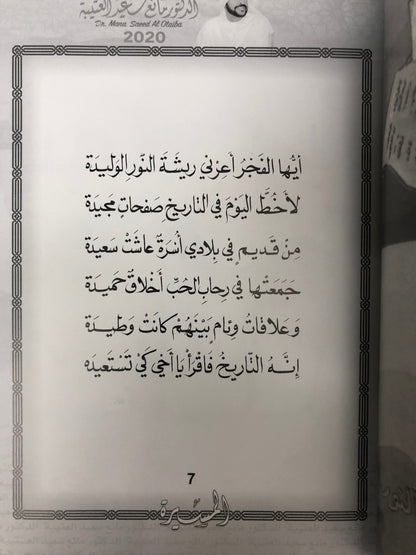 الدكتور مانع سعيد العتيبة
Dr. Mana Saeed Al Otaiba
2020
أيُّها الفَجْرُ أَعِرْني ريشَةَ النّورِ الوَليدَة
لأَخُطَّ اليَوْمَ في التاريخِ صَفحاتٍ مَجيدَة
مِنْ قَديمٍ في بِلادي أُسْرَةٌ عاشَتْ سَعيدَة
جَمَعَتْها في رِحابِ الحُبِّ أَخْلاقٌ حَميدَة
وَعَلاقاتُ وِئامٍ بَيْنَهُمْ كانَتْ وَطيدَة
إنَّهُ التّاريخُ فَاقْرَأْ يا أَخي كَيْ تَسْتَعيدَه
7
المسيرة